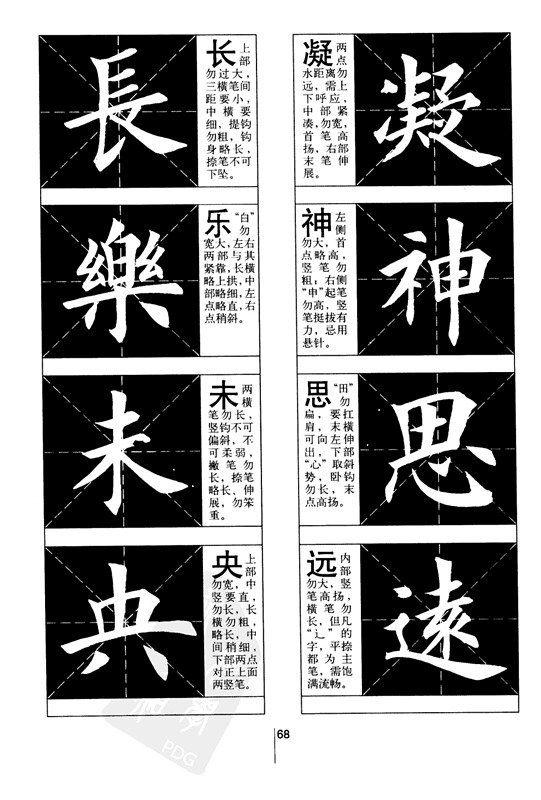 長
长上部
勿过大，
三横笔间
距要小，
中横要
细，提钩
勿粗，钩
身略长，
捺笔不可
下坠。
樂
乐“白”勿
宽大，左右
两部与其
紧靠，长横
略上拱，中
部略细，左
点略直，右
点稍斜。
未
未两横
笔勿长，
竖钩不可
偏斜，不
可柔弱，
撇笔勿
长，捺笔
略长、伸
展，勿笨
重。
央
央上部
勿宽，中
竖要直，
勿长，长
横勿粗，
略长，中
间稍细，
下部两点
对正上面
两竖笔。
凝
凝两点
水距离勿
远，需上
下呼应，
中部紧
凑，勿宽，
首笔高
扬，右部
末笔伸
展。
神
神左侧
勿大，首
点略高，
竖笔勿
粗；右侧
“申”起笔
勿高，竖
笔挺拔有
力，忌用
悬针。
思
思“田”勿
扁，要扛
肩，末横
可向左伸
出，下部
“心”取斜
势，卧钩
勿长，末
点高扬。
遠
远内部
勿大，竖
笔高扬，
横笔勿
长，但凡
“辶”的
字，平捺
都为主
笔，需饱
满流畅。
68
PDG